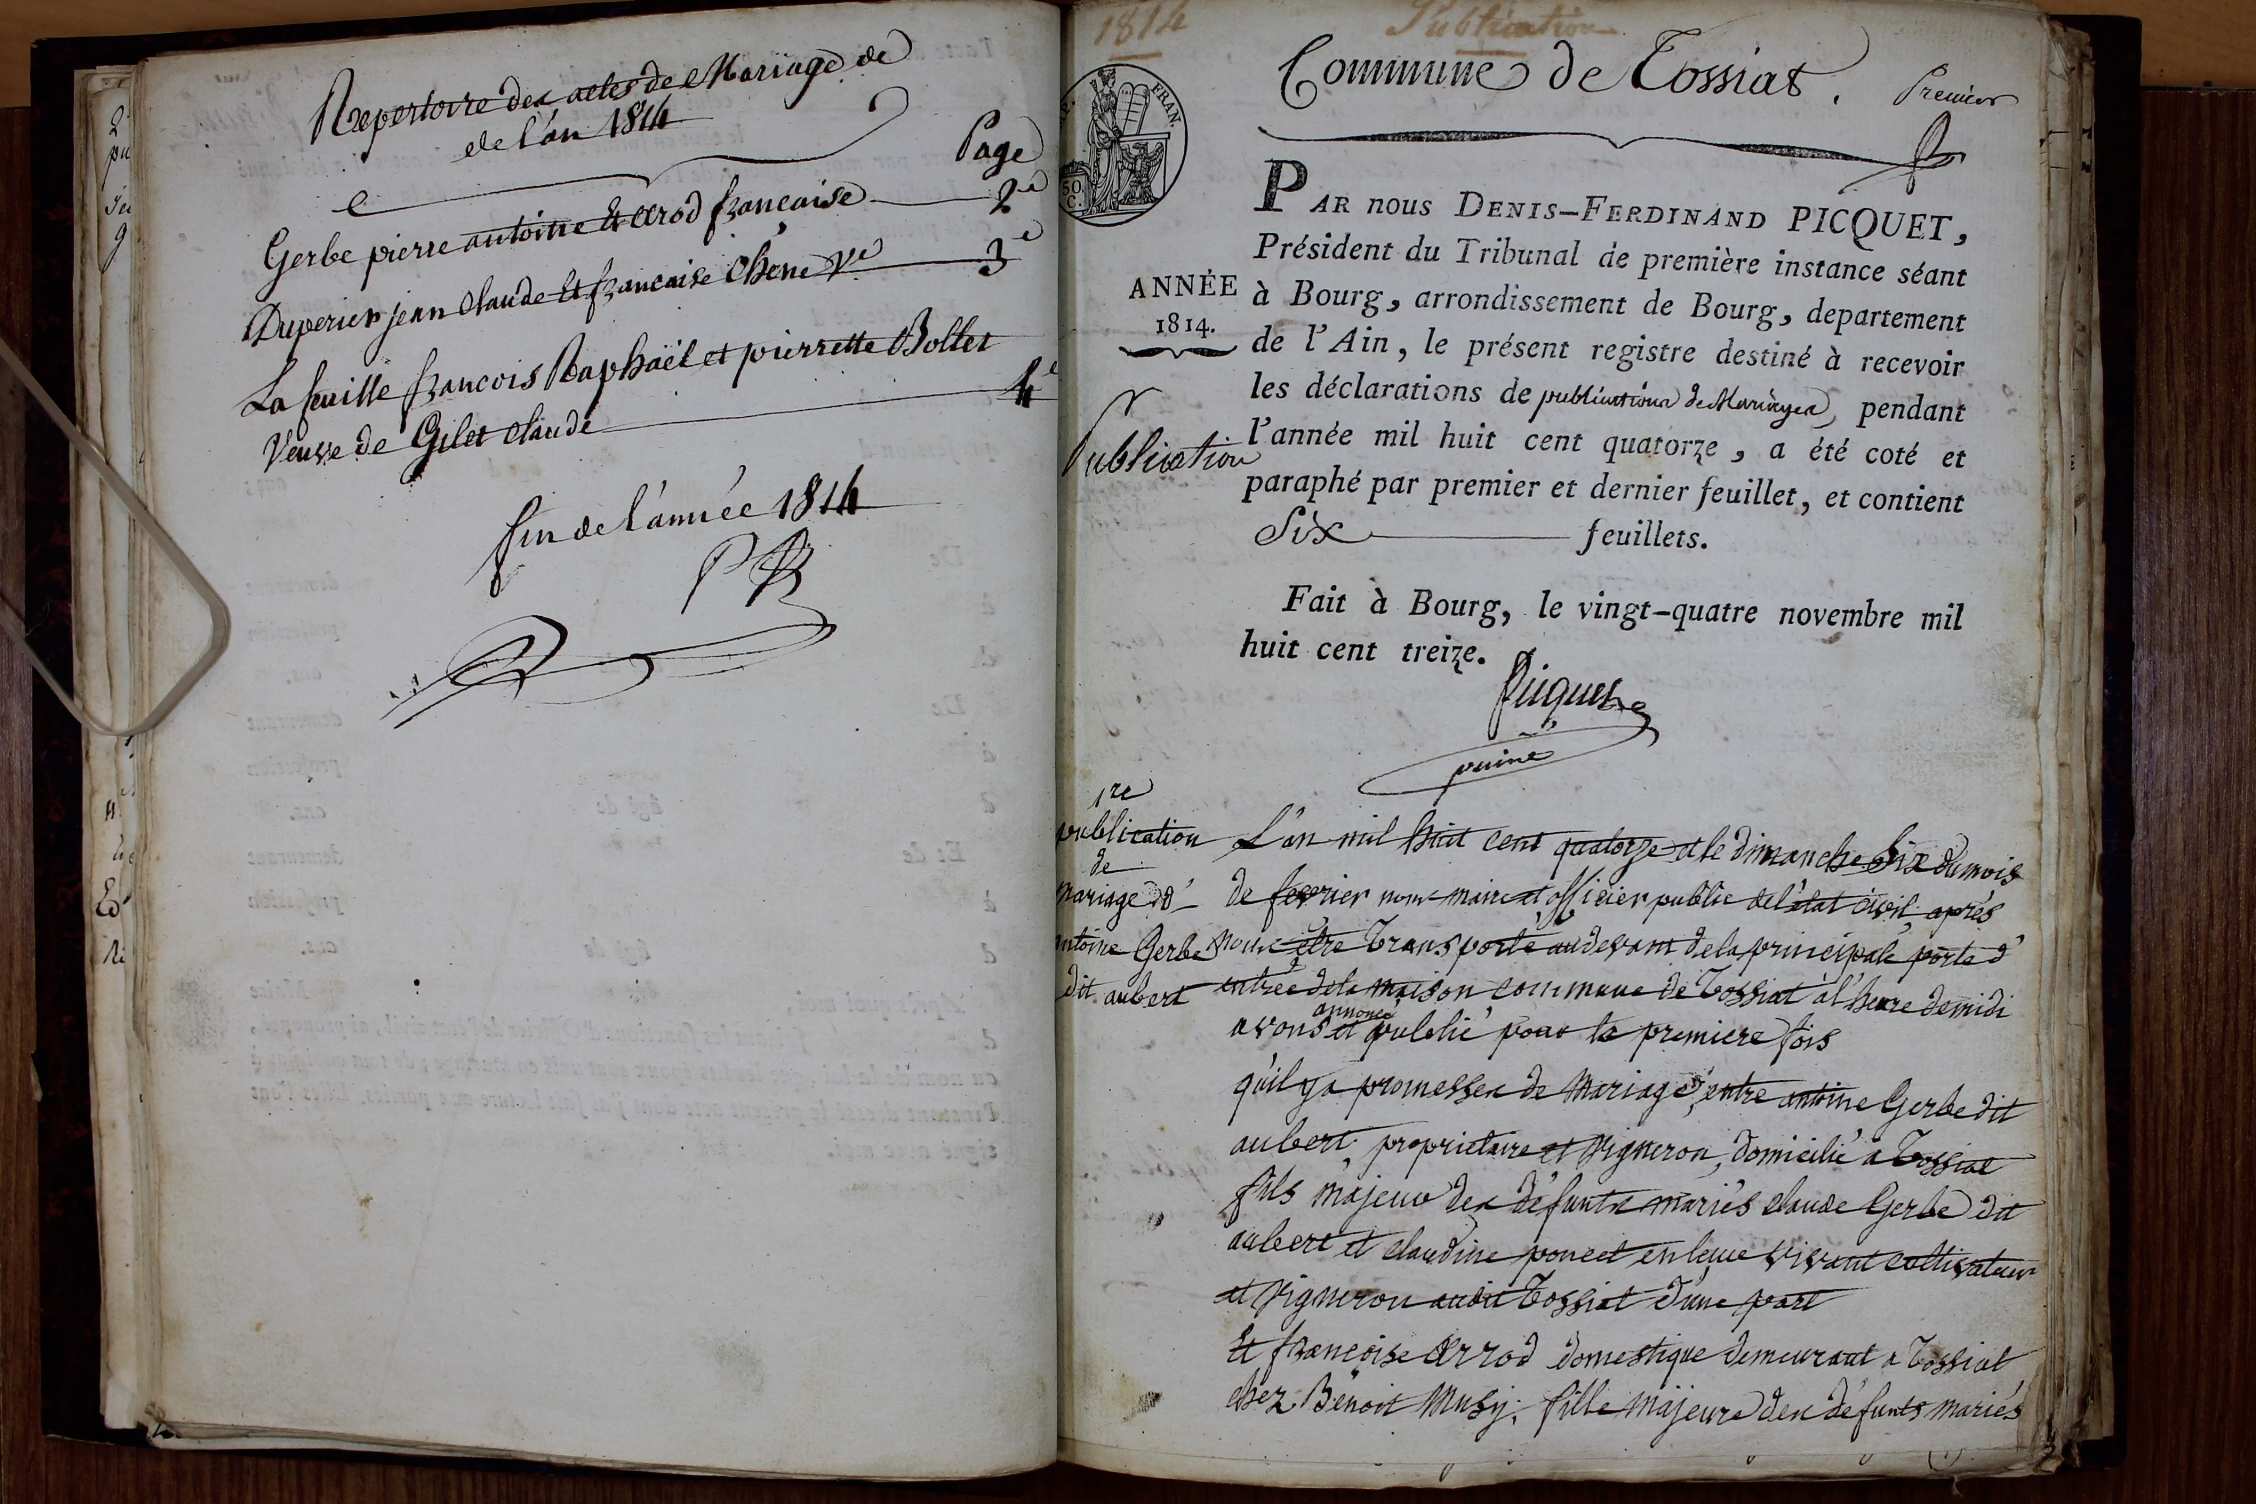 Repertoire des actes de Mariage de
de l'an 1814
Page
Gerbe pierre antoine Et Arod francaise 2e
Duperier jean Claude Et francaise Chêne Ve 3e
La feuille francois Raphaël et pierrette Bollet
Veuve de Gilet claude 4e
fin de l'année 1814
1814 Publication
Commune de Tossiat. Premier
FRAN.
50.
C.
PAR nous DENIS-FERDINAND PICQUET,
Président du Tribunal de première instance séant
à Bourg, arrondissement de Bourg, departement
de l'Ain, le présent registre destiné à recevoir
les déclarations de publications de Mariages, pendant
l'année mil huit cent quatorze, a été coté et
paraphé par premier et dernier feuillet, et contient
Six feuillets.
ANNÉE
1814.
Publication
Fait à Bourg, le vingt-quatre novembre mil
huit cent treize.
Picquet
1re
publication
de
mariage d'
antoine Gerbe
dit aubert
L'an mil huit cent quatorze et le dimanche Six du mois
de fevrier nous maire et officier public de l'état civil, après
nous être Transporté au devant de la principale porte d'
entrée de la maison commune de Tossiat à l'heure de midi
avons annoncé et publié pour la premiere fois
qu'il y a promesses de Mariage, entre antoine Gerbe dit
aubert, proprietaire et Vigneron, domicilié à Tossiat
fils majeur des défunts mariés claude Gerbe dit
aubert et claudine poncet en leur vivant cultivateur
et Vigneron audit Tossiat d'une part
Et françoise Arrod domestique demeurant a Tossiat
chez Benoit Musy, fille majeure des défunts mariés